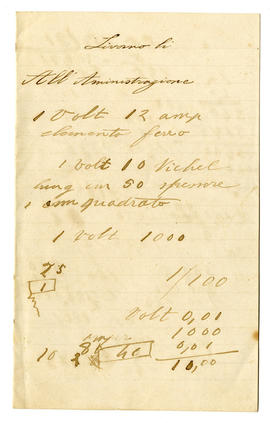 Livorno li
All' Aministrazione
1 Volt 12 amp
elemento ferro
1 volt 10 Nichel
lung cm 50 spessore
1 cm quadrato
1 Volt 1000
25
1
1/100
Volt 0,01
1000
10
0,01
10,00